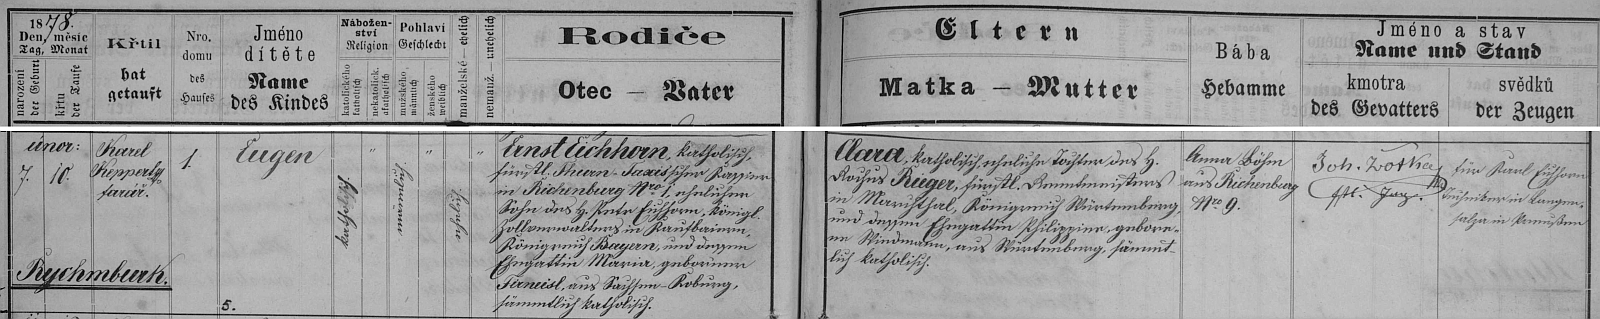 1878.
Den, měsíc
Tag, Monat
narození
der Geburt
křtu
der Taufe
Křtil
hat
getauft
Nro.
domu
des
Hauses
Jméno
dítěte
Name
des Kindes
Nábožen-
ství
Religion
katolického
katholisch
nekatolick.
akatholisch
Pohlaví
Geschlecht
mužského
männlich
ženského
weiblich
manželské – ehelich
nemanž. – unehelich
Rodiče
Otec – Vater
Eltern
Matka – Mutter
Bába
Hebamme
Jméno a stav
Name und Stand
kmotra
des Gevatters
svědků
der Zeugen
únor:
7. 10.
Rychmburk.
Karel
farář.
1.
Eugen
5.
Ernst Eichhorn, katholisch,
fürstl. Thurn-Taxis'scher Kassier
in Richenburg Nro 1. ehelicher
Sohn des H. Peter Eichhorn, königl.
Zollverwalters in Kaufbaiern,
Königreich Bayern, und dessen
Ehegattin Maria, geborener
aus Sachsen-Koburg,
sämmtlich katholisch.
Clara, katholisch, eheliche Tochter des H.
Rochus Rieger, fürstl. Rentmeisters
in Marchthal, Königreich Würtemberg,
und dessen Ehegattin Philippine, gebore-
ne Windmann, aus Würtemberg, sämmt-
lich katholisch.
Anna Böhm
aus Richenburg
Nro 9.
Joh.
für Karl Eichhorn
Techniker in Langen-
salza in Preußen